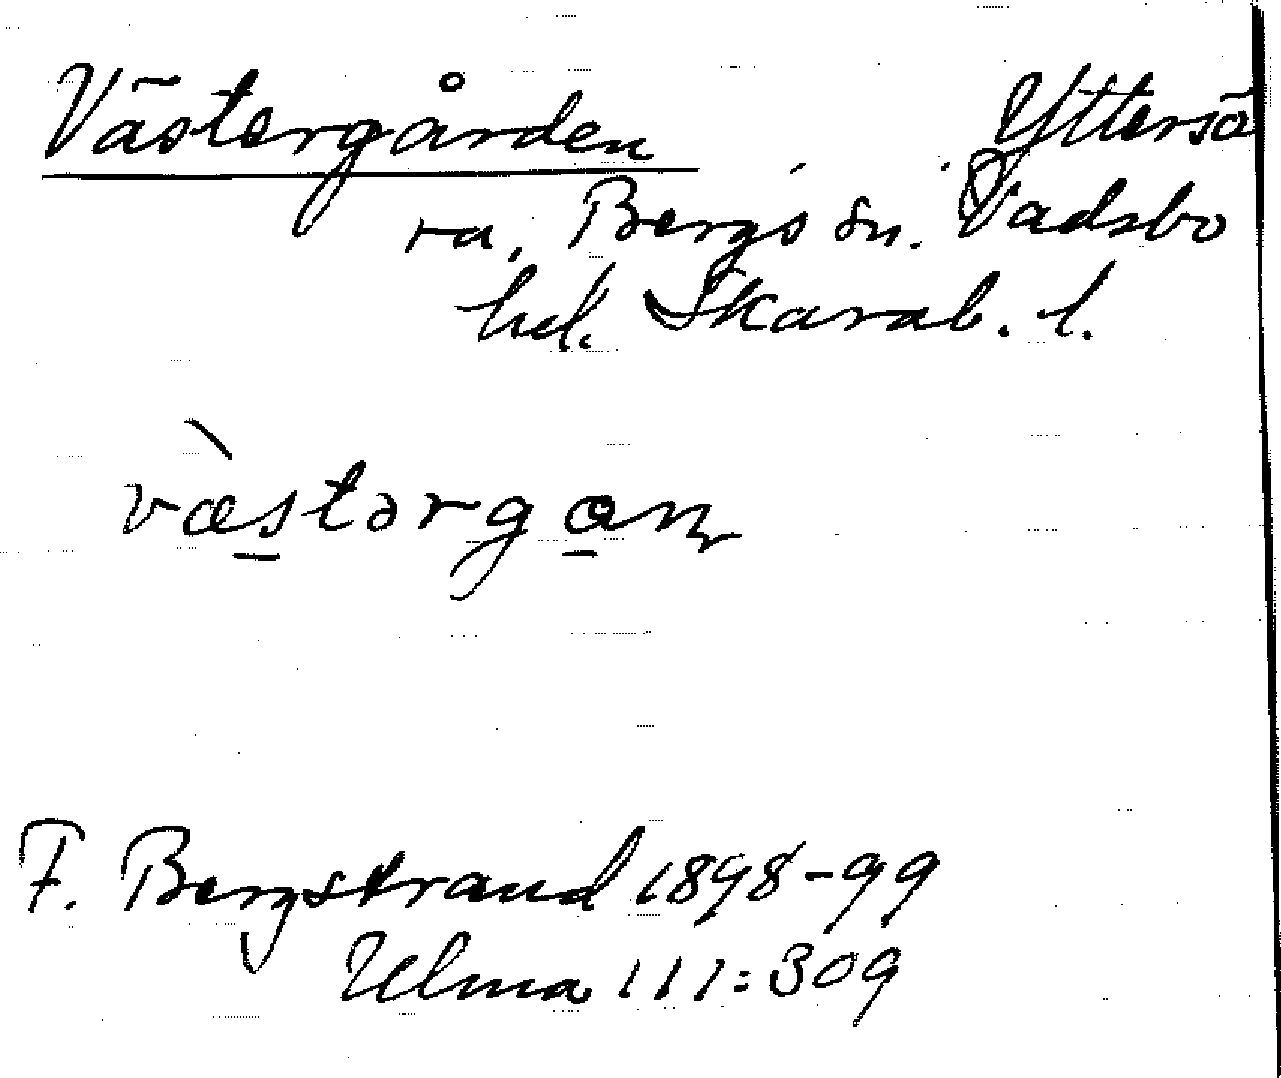 Västergården Yttersö
ra, Bergs sn. Vadsbo
hd. Skarab. l.
væ̀stərgan
F. Bergstrand 1898-99
Ulma 111:309